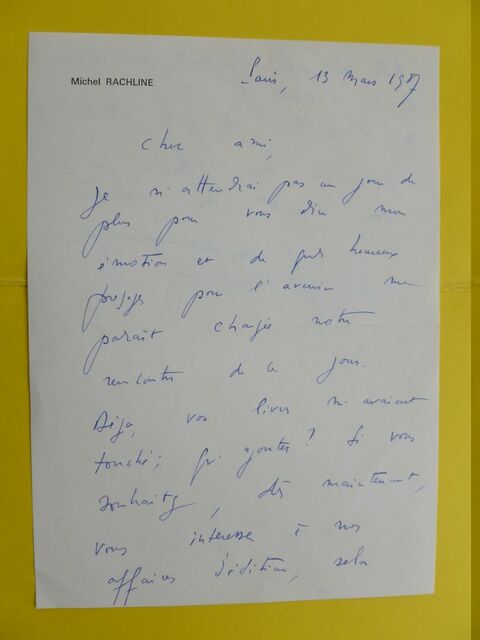 Michel RACHLINE
Paris, 13 mars 1987
Cher ami,
Je n'attendrai pas un jour de
plus pour vous dire mon
émotion et de quels heureux
présages pour l'avenir me
paraît chargée notre
rencontre de ce jour.
Déjà, vos livres m'avaient
touché; qu'ajouter? Si vous
souhaitez, dès maintenant,
vous intéresser à nos
affaires d'édition, selon